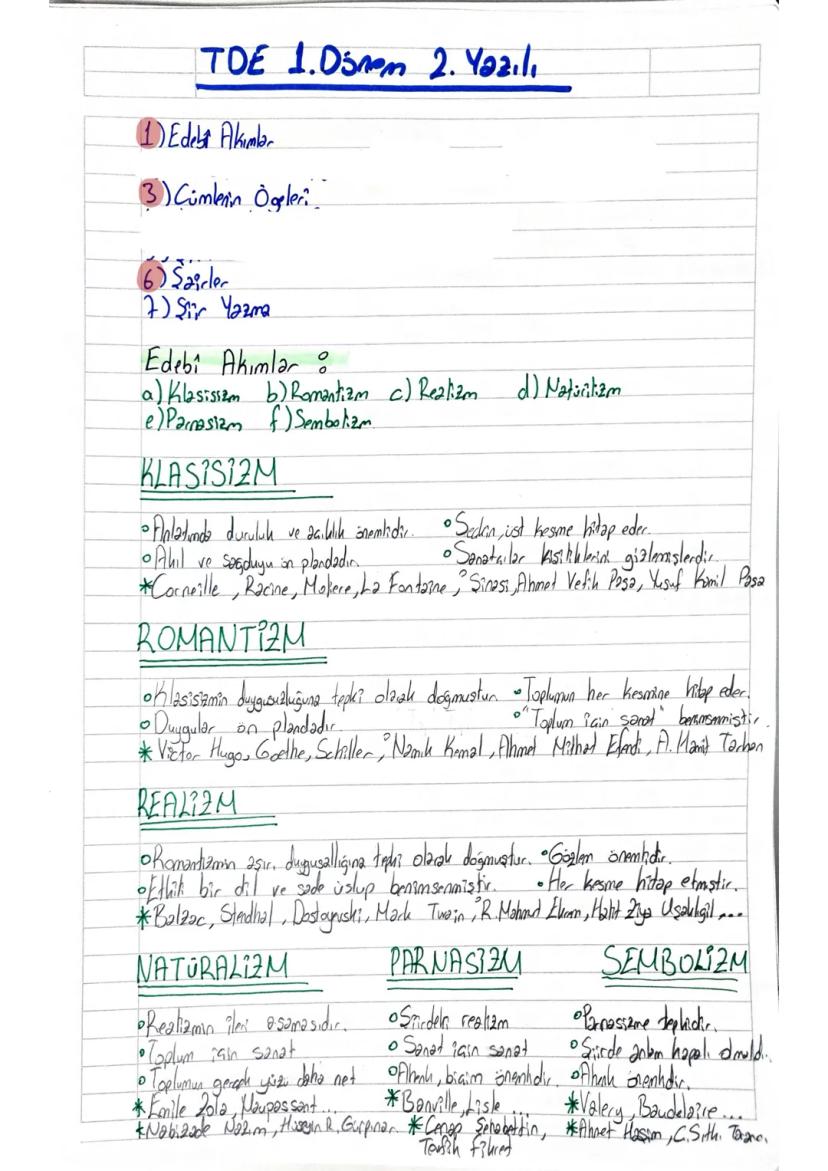 TDE 1.Dönem 2. Yazılı
1) Edebî Akımlar
3) Cümlenin Ögeleri
6) Şairler
7) Şiir Yazma
Edebî Akımlar :
a) Klasisizm b) Romantizm c) Realizm d) Natüralizm
e) Parnasizm f) Sembolizm
KLASİSİZM
Anlatımda duruluk ve açıklık önemlidir. Seçkin, üst kesme hitap eder.
Akıl ve sağduyu ön plandadır. Sanatçılar kişiliklerini gizlemişlerdir.
*Corneille, Racine, Moliere, La Fontaine, Şinasi, Ahmet Vefik Paşa, Yusuf Kamil Paşa
ROMANTİZM
Klasisizmin duygusuzluğuna tepki olarak doğmuştur. Toplumun her kesmine hitap eder.
Duygular ön plandadır. "Toplum için sanat" benimsenmiştir.
* Victor Hugo, Goethe, Schiller, Namık Kemal, Ahmet Mithat Efendi, A. Hamit Tarhan
REALİZM
Romantizmin aşırı duygusallığına tepki olarak doğmuştur. Gözlem önemlidir.
Etkili bir dil ve sade üslup benimsenmiştir. Her kesme hitap etmiştir.
*Balzac, Stendhal, Dostoyevski, Mark Twain, R. Mahmut Ekrem, Halit Ziya Uşaklıgil ...
NATÜRALİZM PARNASİZM SEMBOLİZM
Realizmin ileri aşamasıdır. Şiirdeki realizm Parnasizme tepkidir.
Toplum için sanat Sanat için sanat Şiirde anlam kapalı olmalı.
Toplumun gerçek yüzü daha net Ahenk, biçim önemlidir. Ahenk önemlidir.
* Emile Zola, Maupassant... * Banville, Lisle ... *Valery, Baudelaire ...
*Nabizade Nazım, Hüseyin R. Gürpınar *Cenap Şehabettin, *Ahmet Haşim, C. Sıtkı Tarancı
Tevfik Fikret